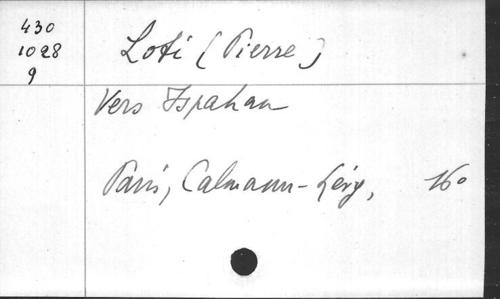 430
1028
9
Loti (Pierre)
Vers Ispahan
Paris, Calmann-Lévy, 16°